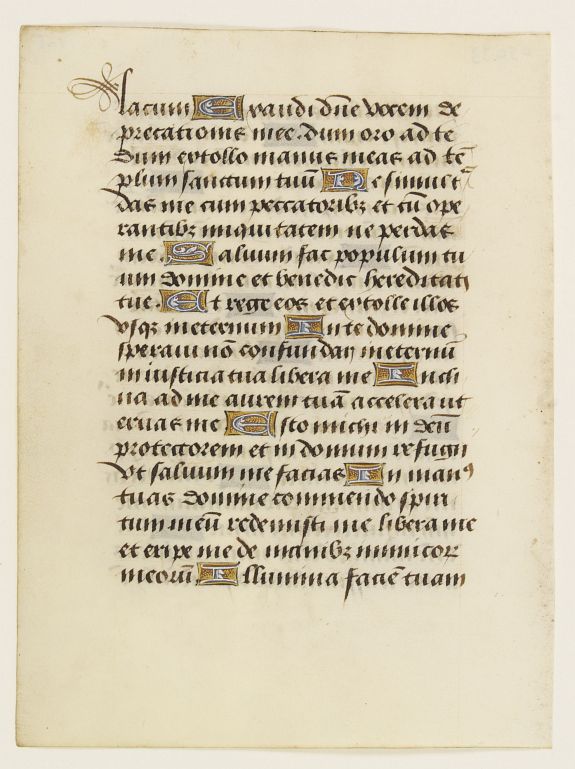 lacum E xaudi dñe vocem de
precationis mee. dum oro ad te
Dum extollo manus meas ad tē
plum sanctum tuū N e simul t
das me cum peccatoribȝ et cū ope
rantibȝ iniquitatem ne perdas
me. S aluum fac populum tu
um Domine et benedic hereditati
tue. E t rege eos et extolle illos
vsqȝ ineternum I n te domine
speraui nō confundar ineternū
in iusticia tua libera me I ncli
na ad me aurem tuā accelera ut
eruas me E sto michi in deū
protectorem et in domum refugii
vt saluum me facias I n manꝰ
tuas Domine commendo spiri
tum meū redemisti me libera me
et eripe me de manibȝ inimicoꝝ
meorū. I llumina faciē tuam